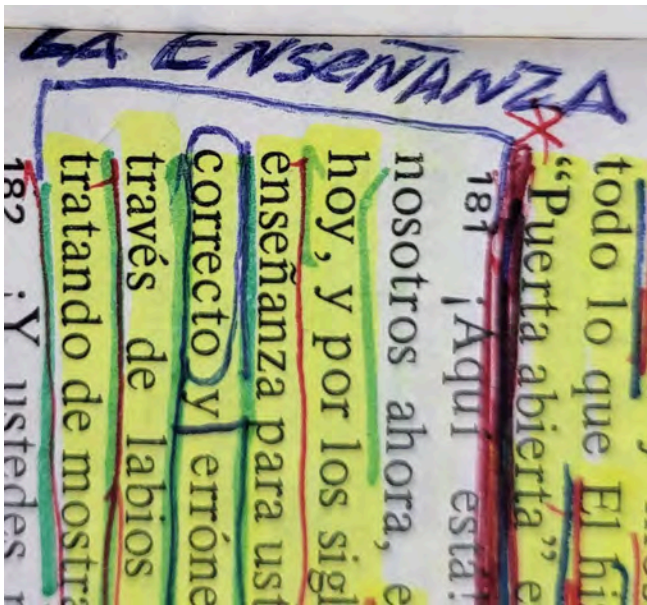 LA ENSEÑANZA
todo lo que El hi
"Puerta abierta" e
181 ¡Aquí está!
nosotros ahora, e
hoy, y por los sigl
enseñanza para ust
correcto y erróne
través de labios
tratando de mostra
182 ¡Y ustedes